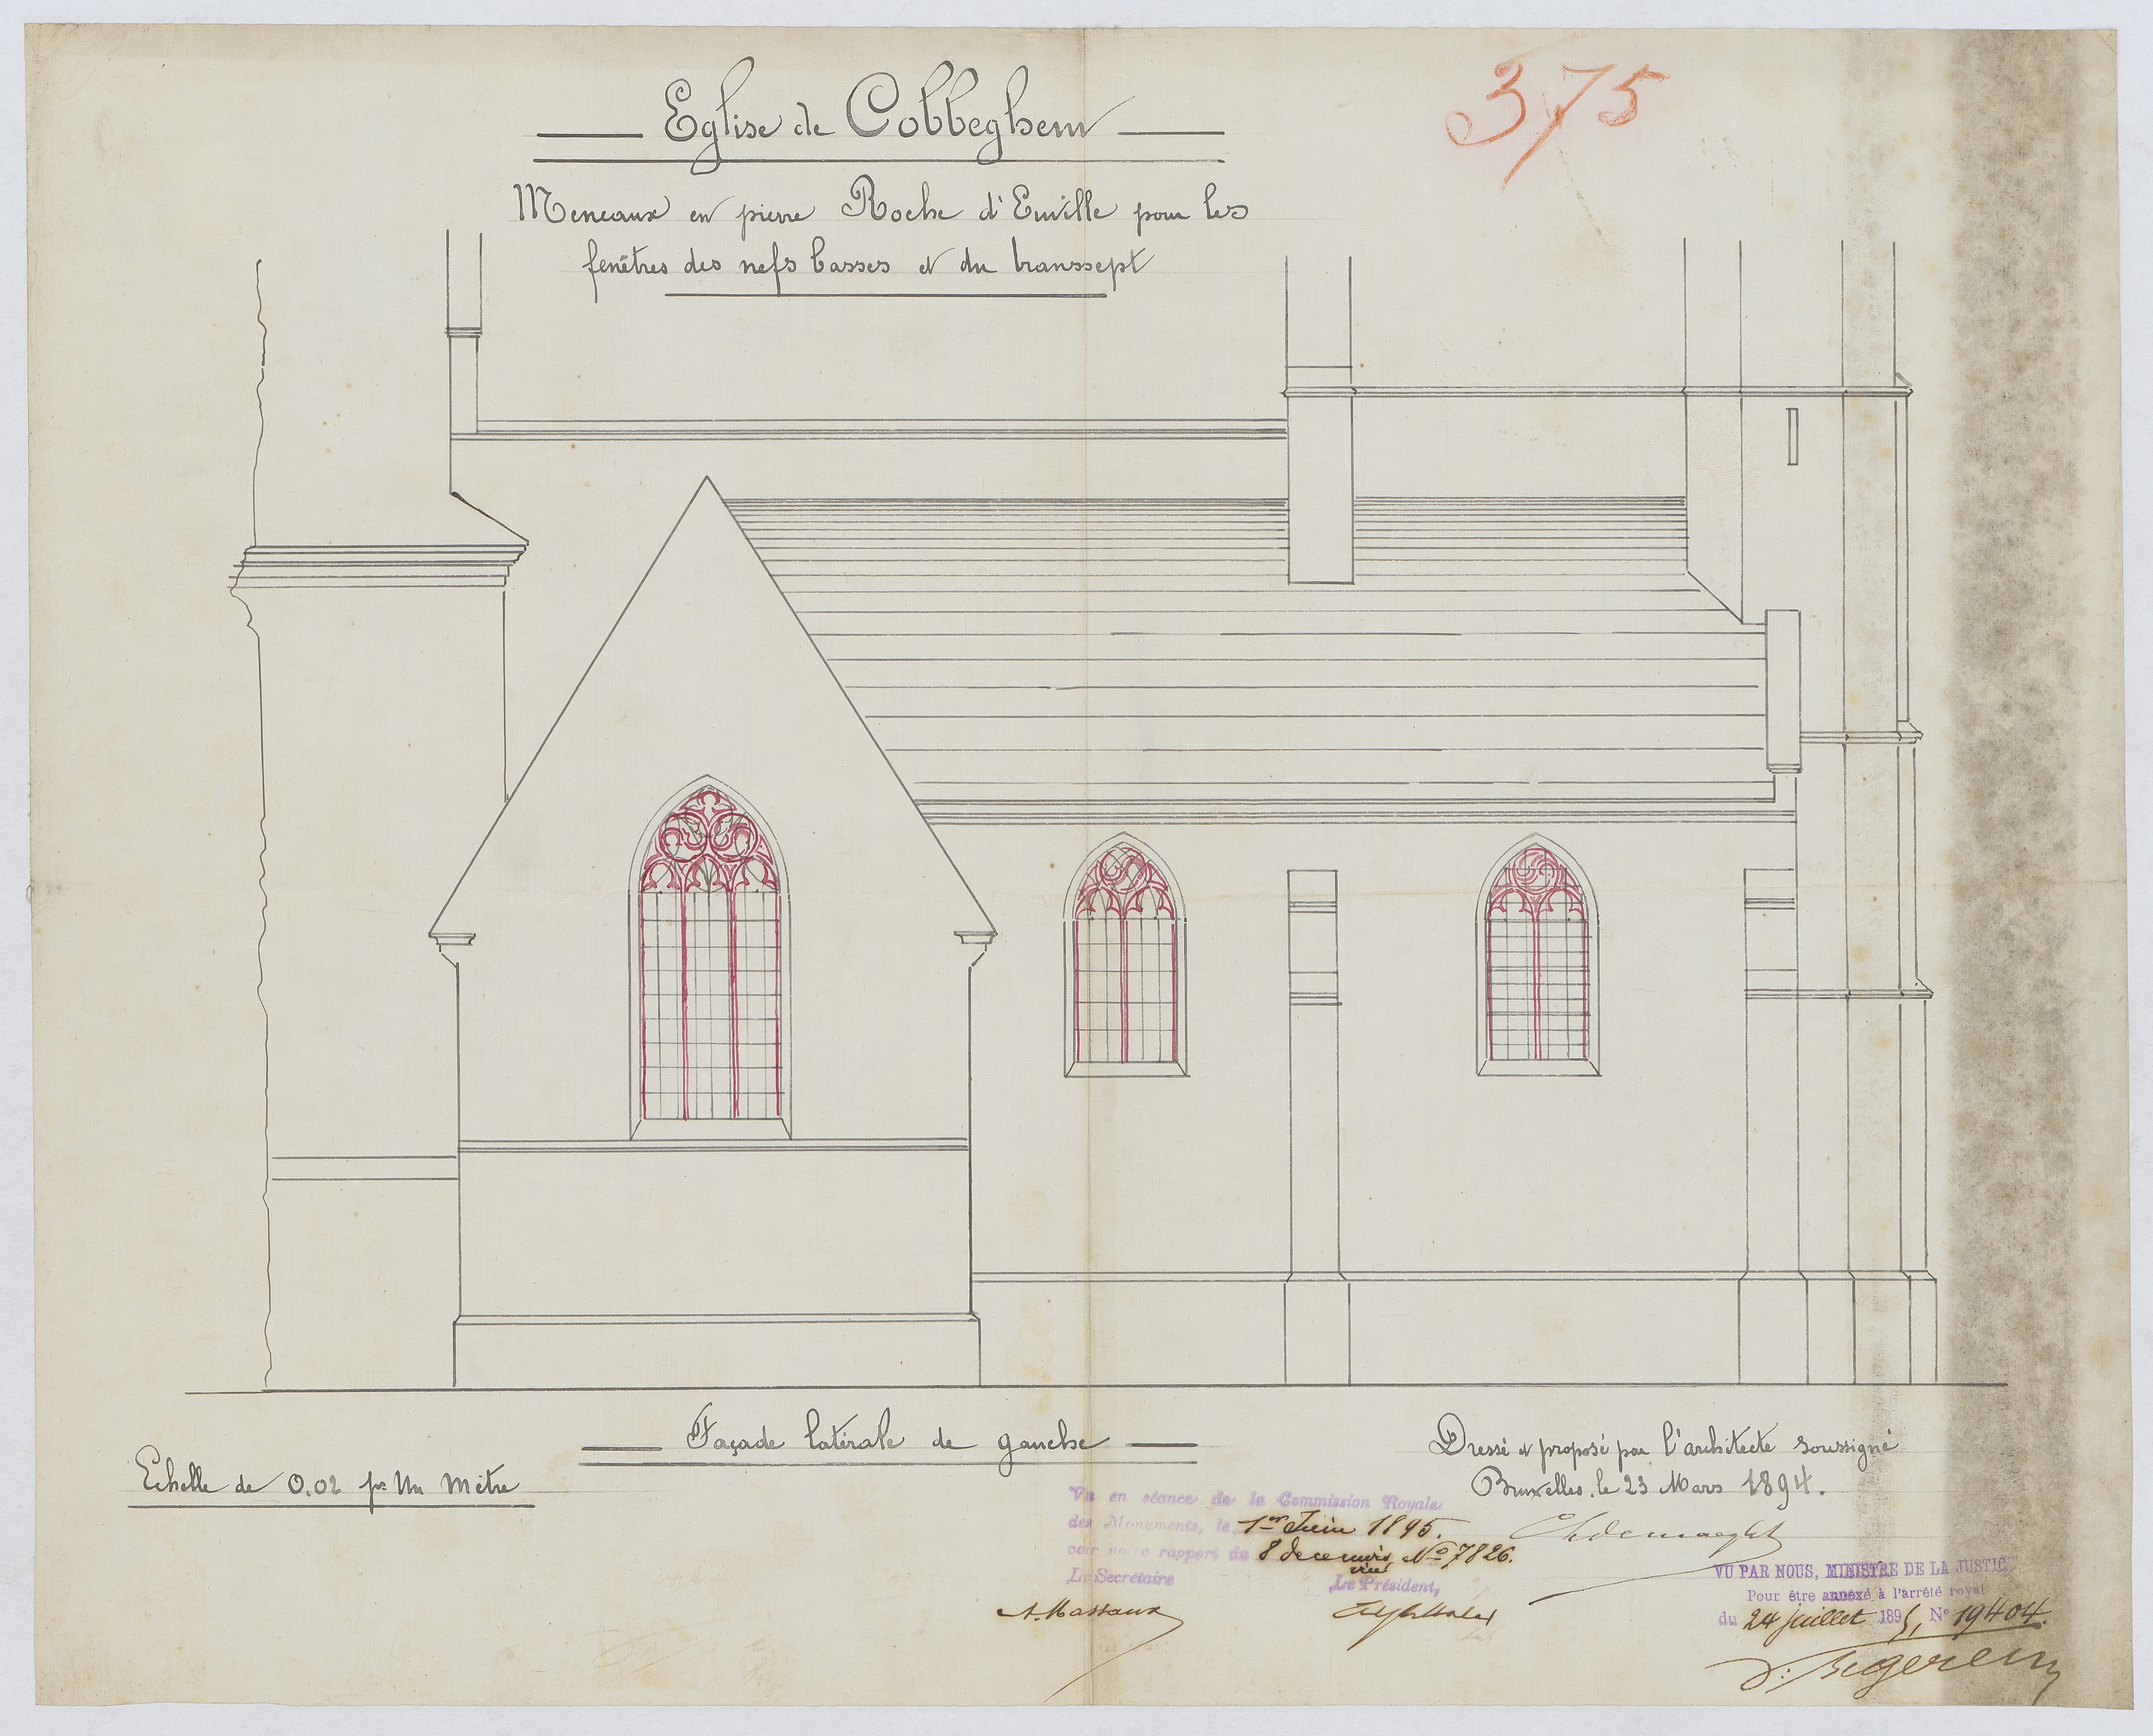 375
Eglise de Cobbeghem
Meneaux en pierre Roche d'Euville pour les
fenêtres des nefs basses et du transsept
Façade latérale de gauche
Echelle de 0.02 pr Un Mètre
Dressé et proposé par l'architecte soussigné
Bruxelles, le 23 Mars 1894.
Vu en séance de la Commission Royale
des Monuments, le 1er Juin 1895.
voir notre rapport du 8 decembre, No 7826.
Le Secrétaire
Le Président,
A. Massaux
VU PAR NOUS, MINISTRE DE LA JUSTICE
Pour être annexé à l'arrêté royal
du 24 juillet 1895, No 19404.